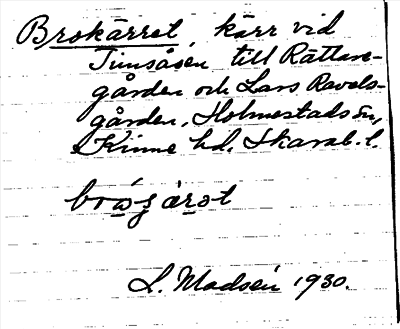 Brokärret, kärr vid
Timsåsen till Rättare-
gården och Lars Ravels-
gården, Holmestads sn,
Kinne hd, Skarab. l.
L. Madsén 1930.